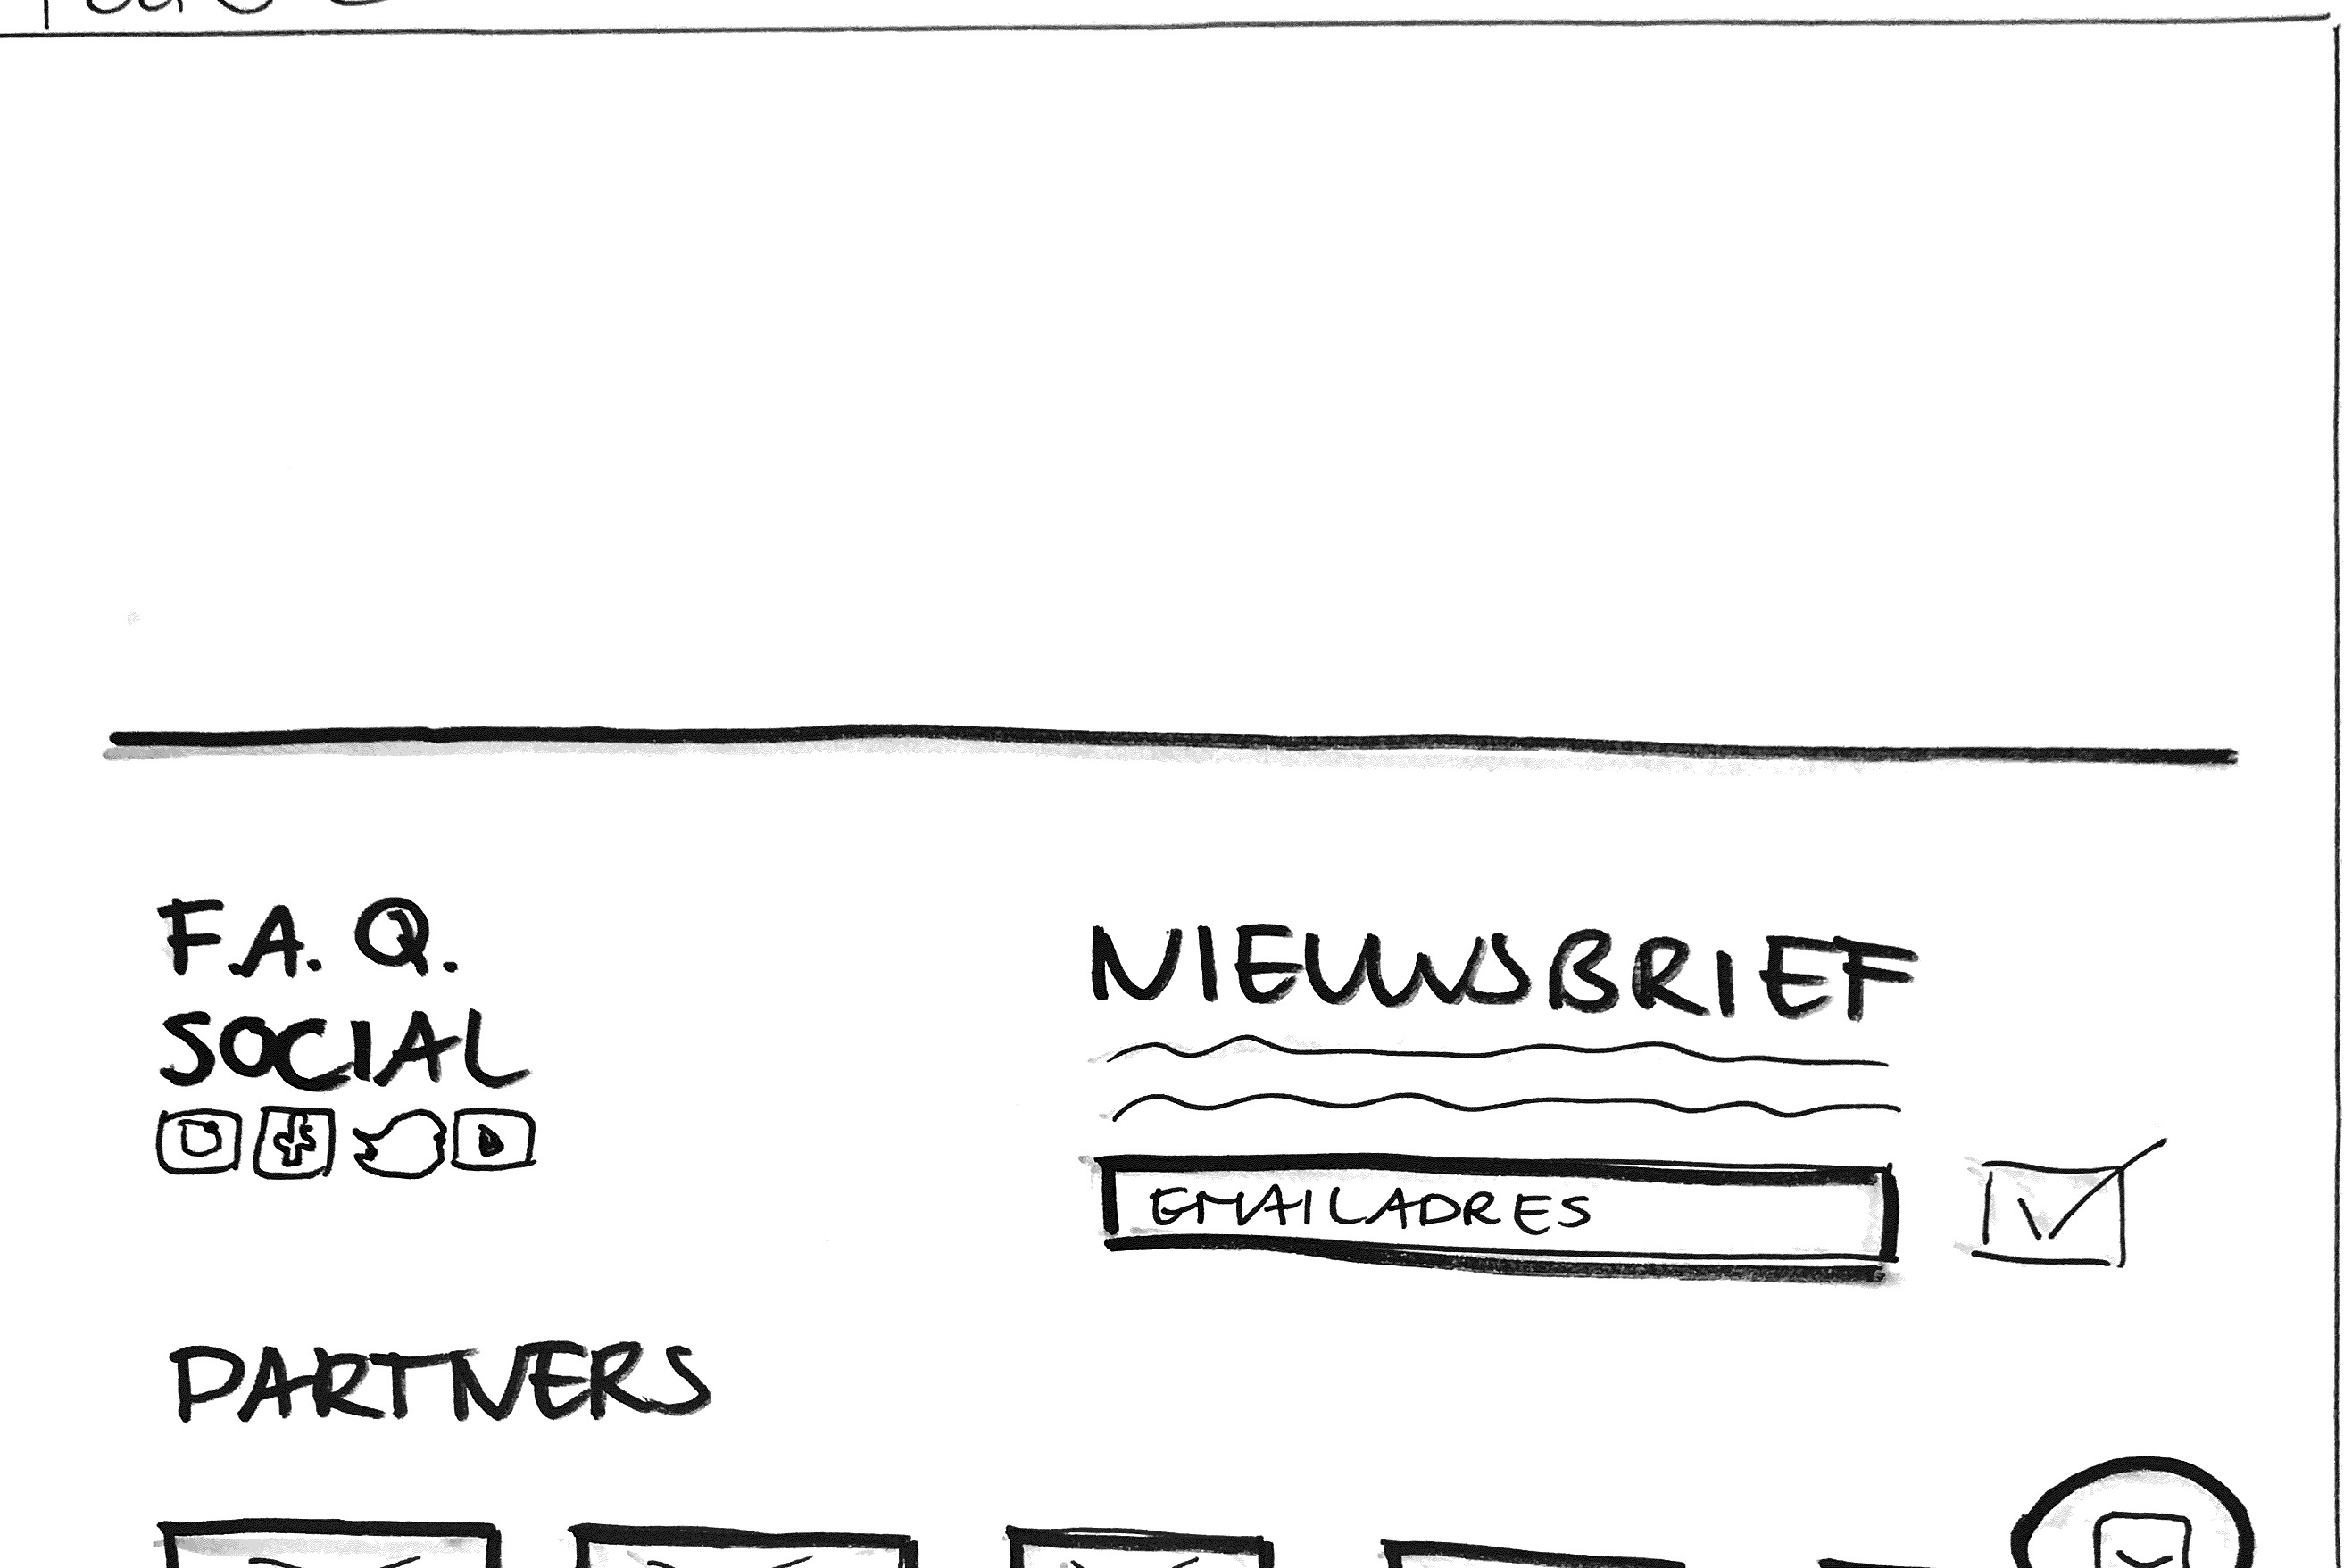 F.A.Q.
SOCIAL
NIEUWSBRIEF
EMAILADRES
PARTNERS